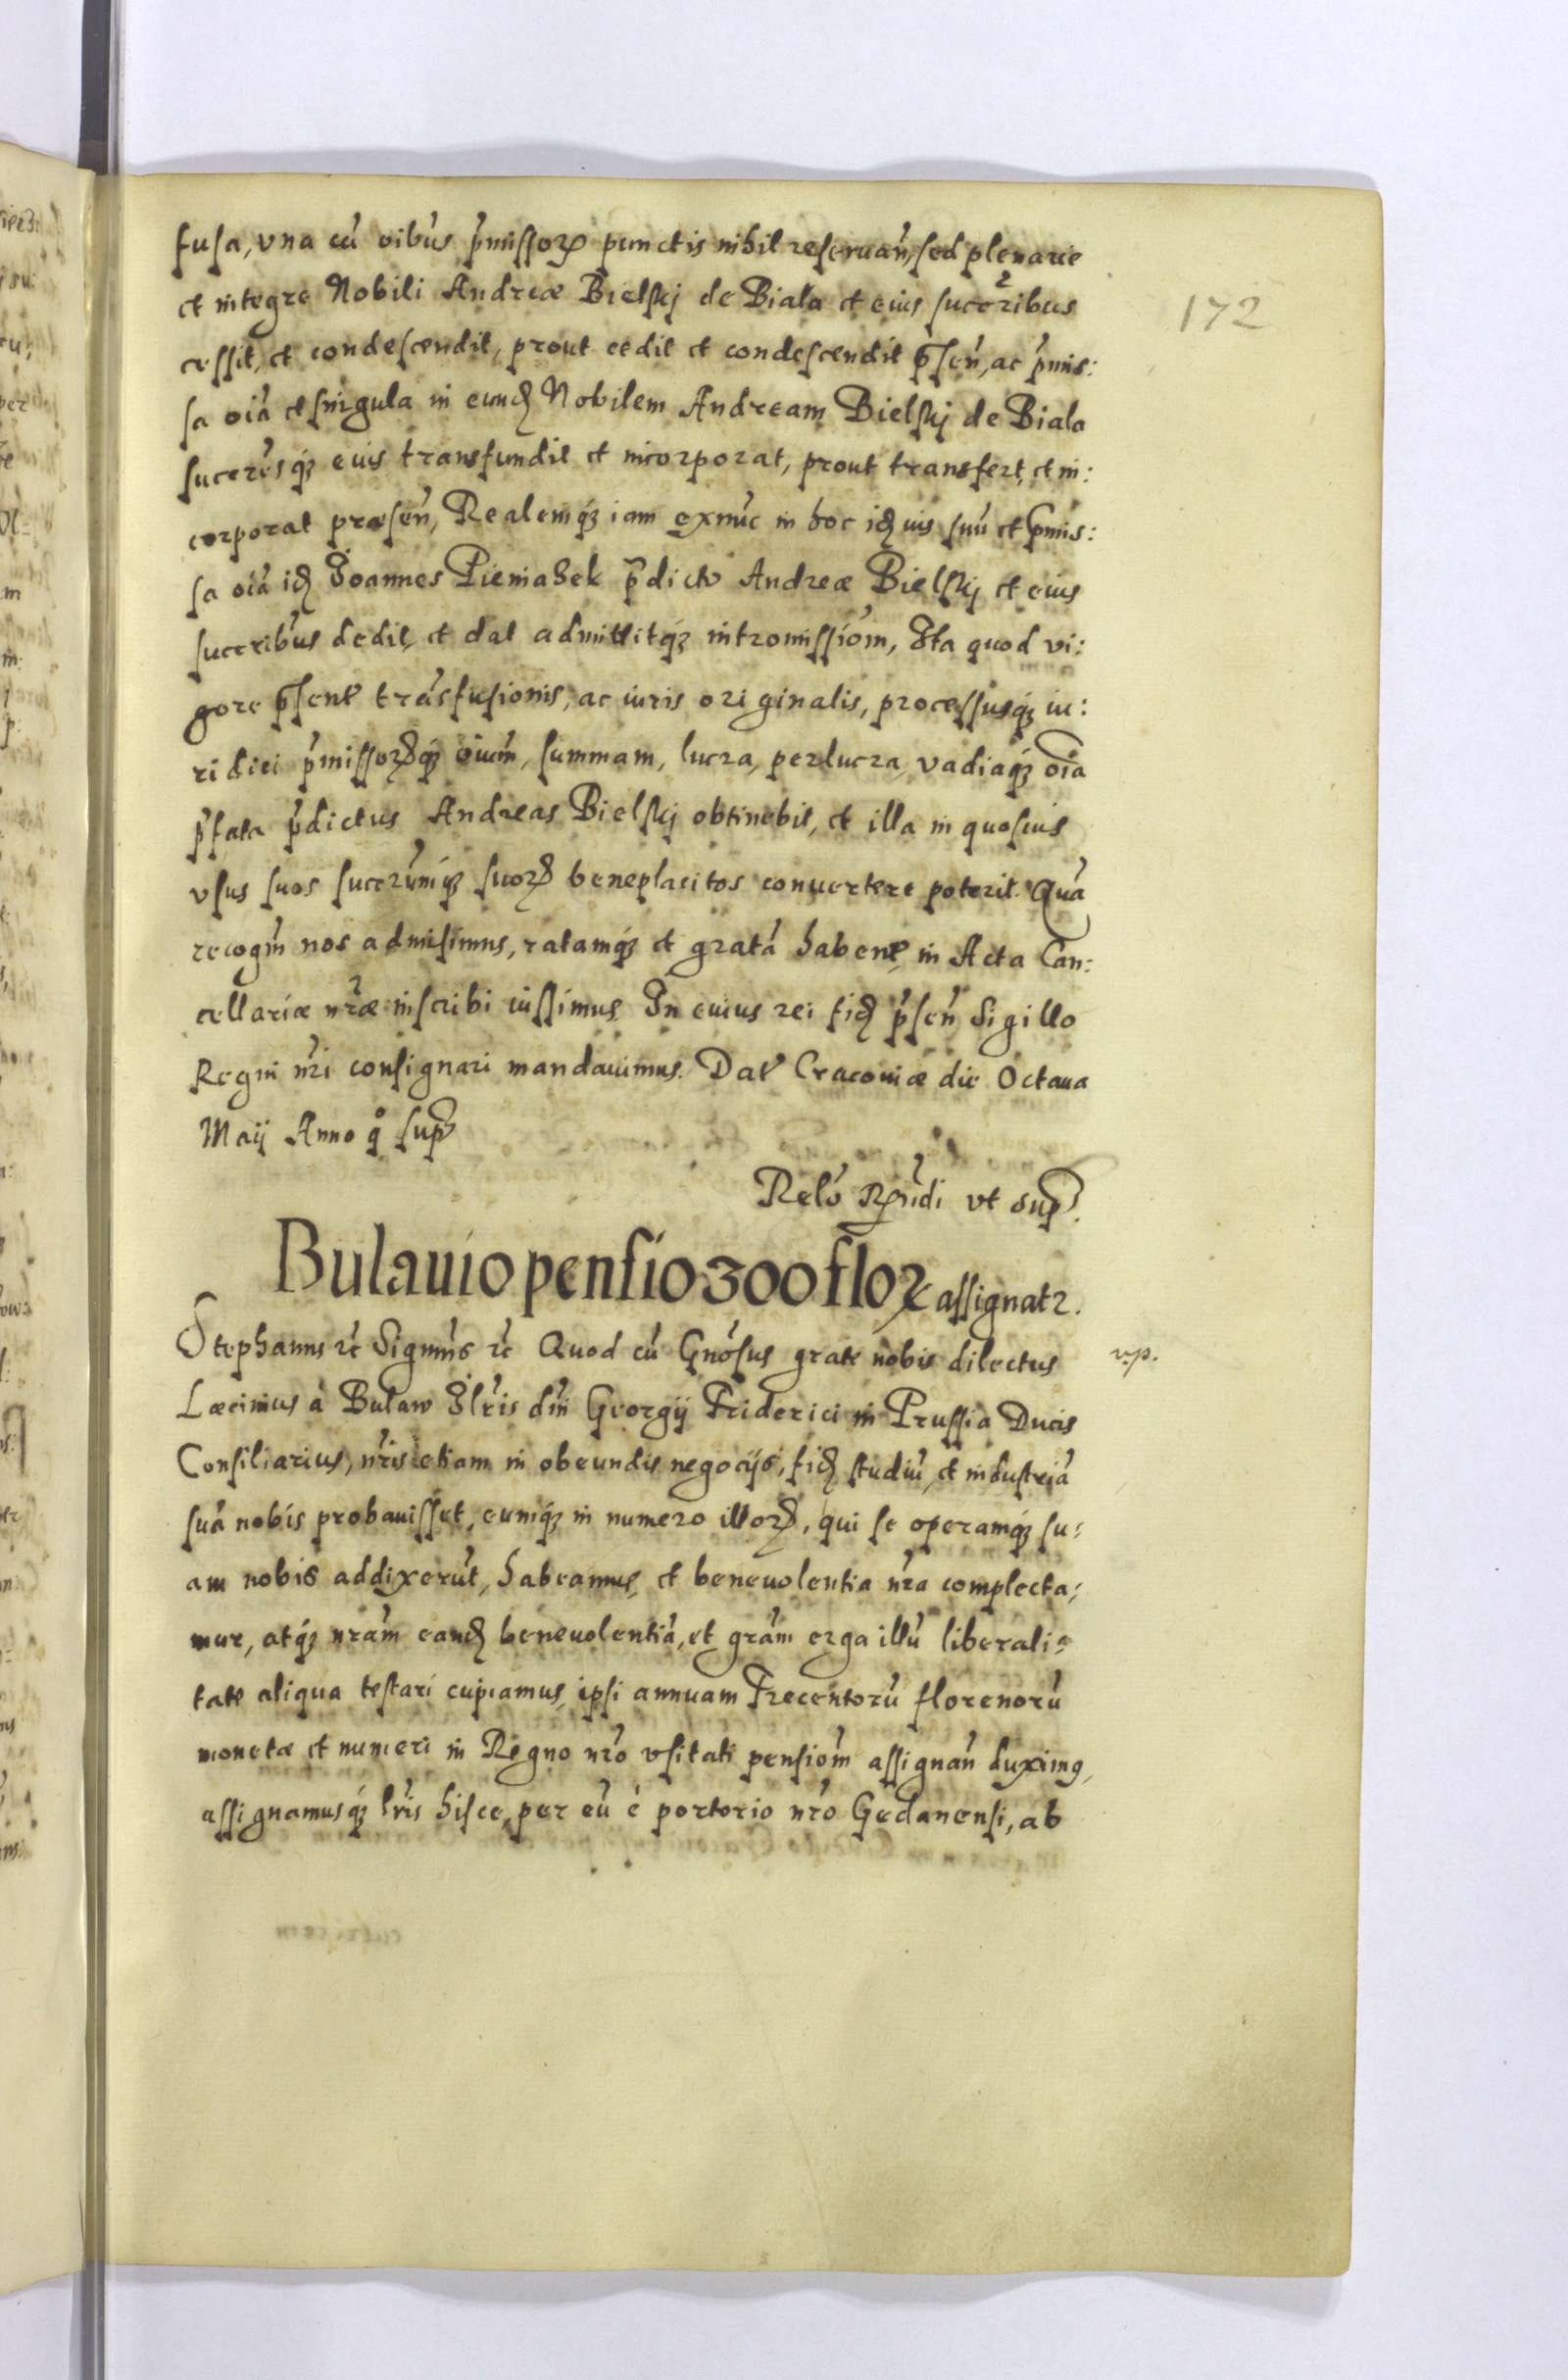 fusa, vna cũ oibus p̃missorꝝ punctis nihil reseruan̄, sed plenarie
et integre Nobili Andreæ Bielskj de Biala et eius succr̃ibus
cessit, et condescendit, prout cedit et condescendit p̃sen̄, ac p̃mis:
sa oi̅a et singula in eund̃ Nobilem Andream Bielskj de Biala
succer̃esq́ꝫ euis transfundit et incorporat, prout transfert, et in:
corporat præsen̄, Realemq́ꝫ iam exnũc in hoc id̃ ius suũ et p̃mis:
sa oi̅a id̃ Joannes Pieniaħek p̃dicto Andreæ Bielskj et eius
succribus dedit, et dat admittitq́ꝫ intromissiõm, Ita quod vi:
gore p̃sent̃ trãsfusionis, ac iuris originalis, processusq́ꝫ iu:
ridici p̃missorꝝq́ꝫ oium̃, summam, lucra, perlucra, vadiaq́ꝫ oi̅a
p̃fata p̃dictus Andreas Bielskj obtinebit, et illa in quosuis
vsus suos succrum̃q́ꝫ suorꝝ beneplacitos conuertere poterit. Quã
recogm̃ nos admisimus, ratamq́ꝫ et gratã habent̃, in Acta Can:
cellariæ nr̃æ inscribi iussimus. In cuius rei fid̃ p̃sen̄ Sigillo
Regni nr̃i consignari mandauimus. Dat̃ Cracouiæ die Octaua
Maij Anno q̊ sup̃
Relõ Rñdi vt sup̃.
Bulauio pensio 300 florꝝ assignatr.
Stephanus ꝛc̃ Signm̃s ꝛc̃ Quod cũ Gñosus grate nobis dilectus
Læcinius à Bulaw Jlr̃is dñi Georgij Friderici in Prussia Ducis
Consiliarius, nr̃is etiam in obeundis negocijs, fid̃ studiũ, et industriã
suã nobis probauisset, eumq́ꝫ in numero illorꝝ, qui se operamq́ꝫ su:
am nobis addixerũt, habeamus, et beneuolentia nr̃a complecta:
mur, atq́ꝫ nrãm eand̃ beneuolentiã, et grãm erga illũ liberali:
tate aliqua testari cupiamus, ipsi annuam Trecentorũ florenorũ
monetæ et numeri in Regno nr̃o vsitati pensiõm assignan̄ duximꝰ,
assignamusq́ꝫ lr̃is hisce, per eũ è portorio nr̃o Gedanensi, ab
172